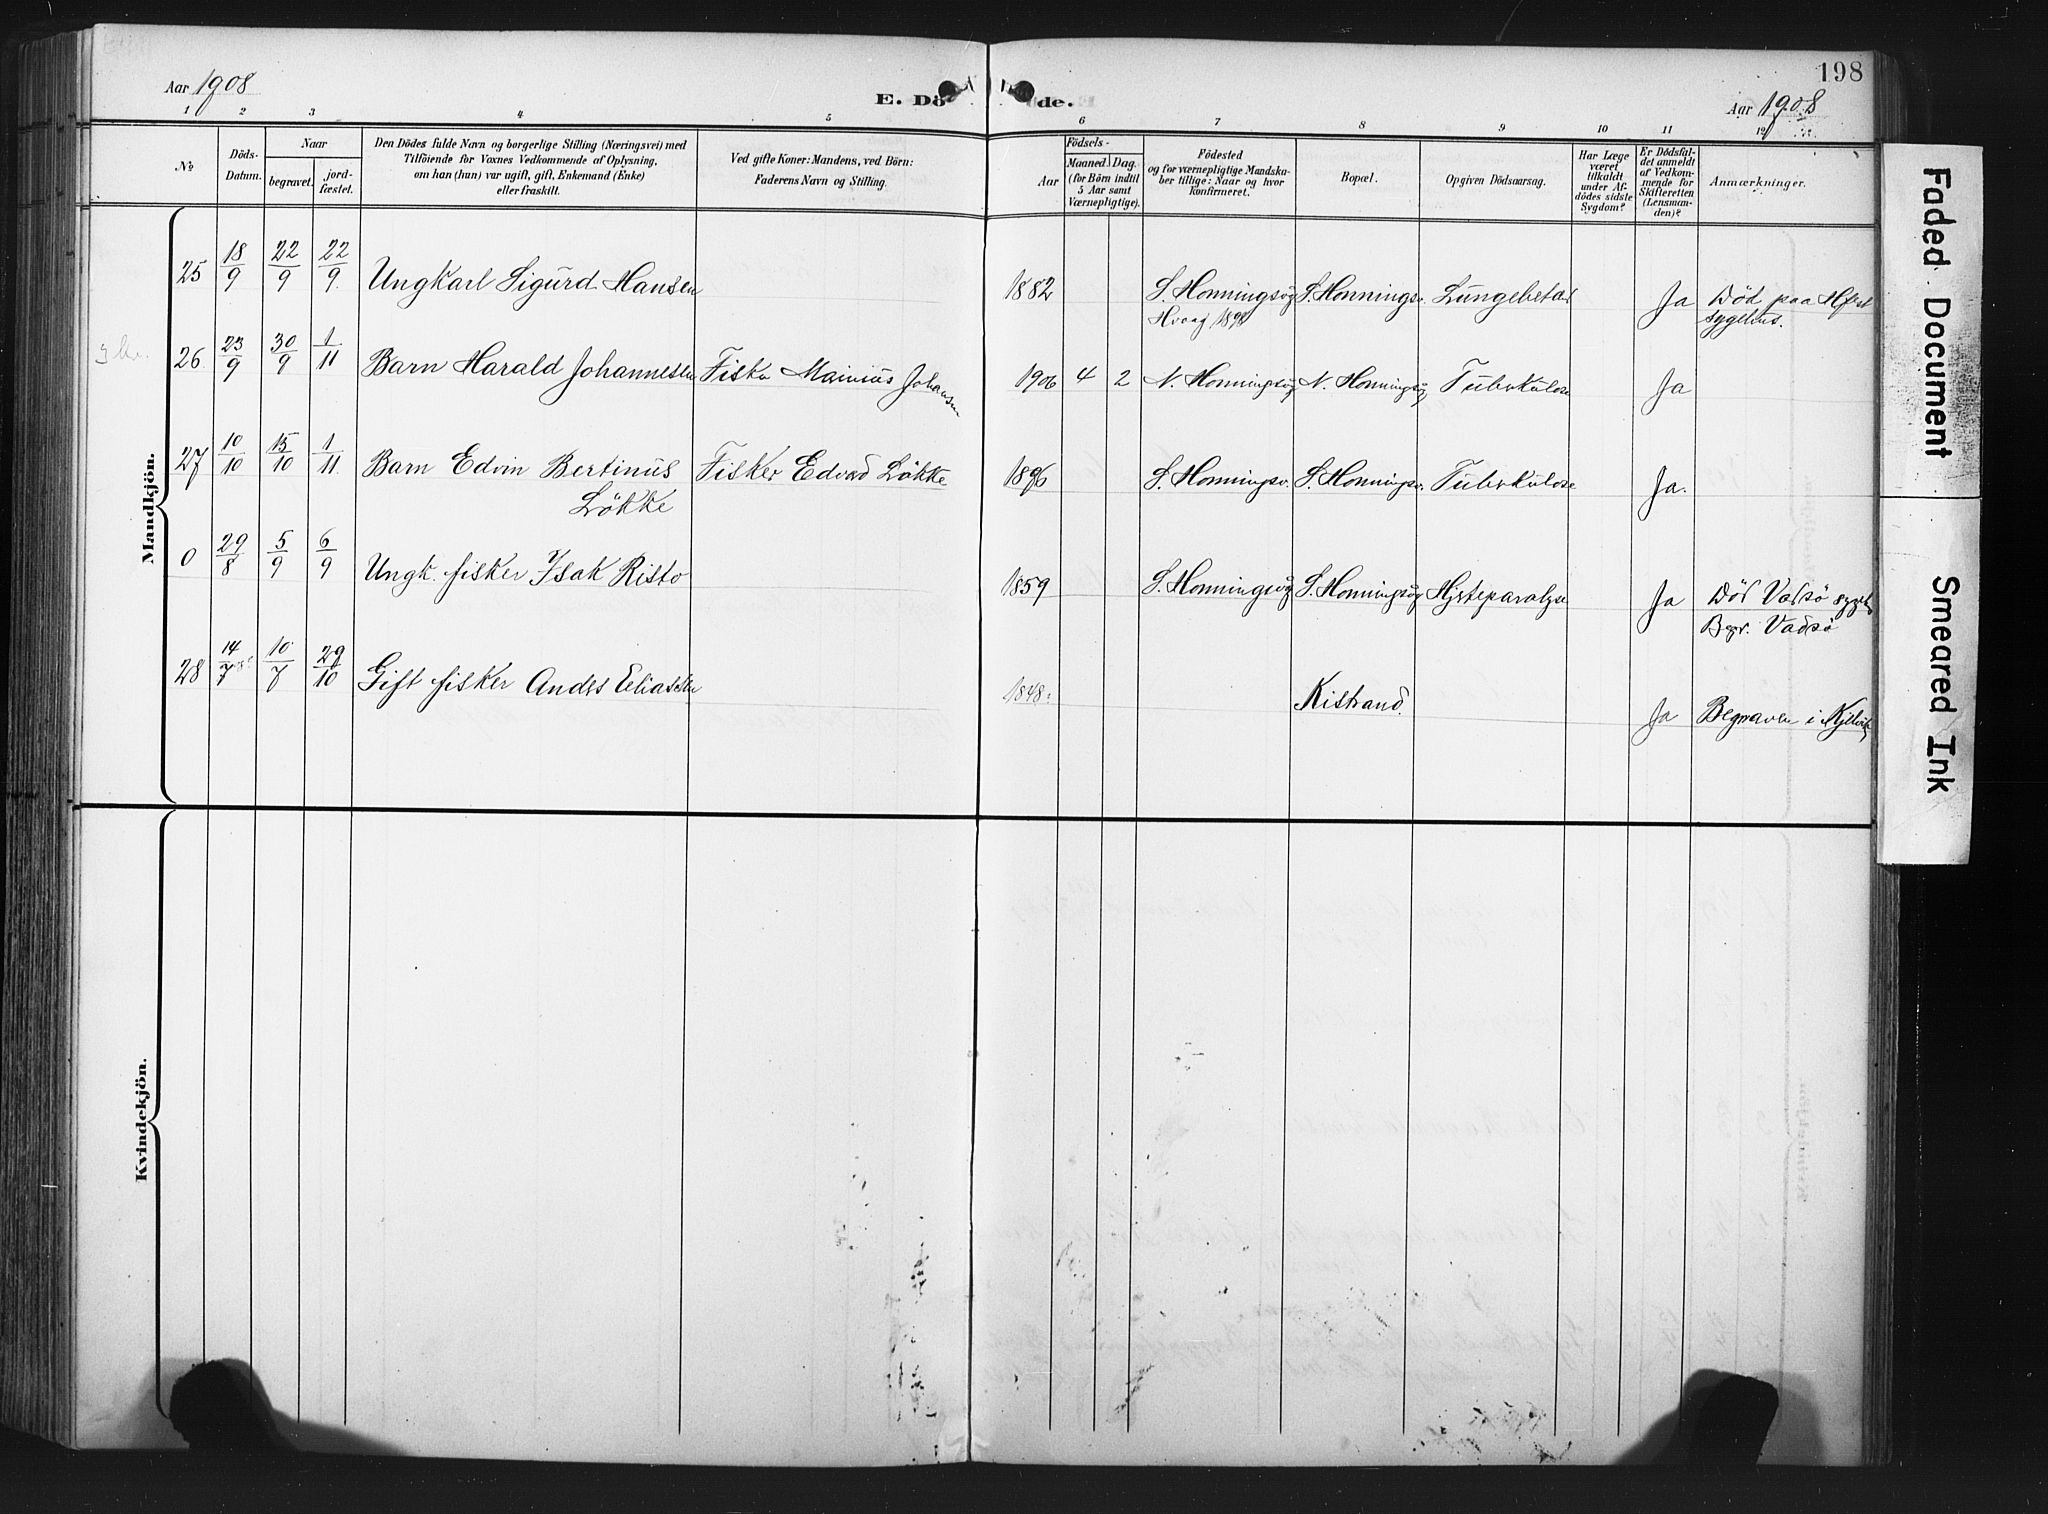 198
Aar 1908
E. Dö de.
Aar 1908
1 2 3 4 5 6 7 8 9 10 11 12
No
Döds-
Datum.
Naar
begravet.
jord-
fæstet.
Den Dödes fulde Navn og borgerlige Stilling (Næringsvei) med
Tilföiende for Voxnes Vedkommende af Oplysning,
om han (hun) var ugift, gift, Enkemand (Enke)
eller fraskilt.
Ved gifte Koner: Mandens, ved Börn:
Faderens Navn og Stilling.
Födsels-
Aar
Maaned.
Dag.
(for Börn indtil
5 Aar samt
Værnepligtige).
Födested
og for værnepligtige Mandska-
ber tillige: Naar og hvor
konfirmeret.
Bopæl.
Opgiven Dödsaarsag.
Har Læge
været
tilkaldt
under Af-
dödes sidste
Sygdom?
Er Dödsfal-
det anmeldt
af Vedkom-
mende for
Skifteretten
(Lensman-
den)?
Anmærkninger.
Mandkjön.
25 18/9 22/9 22/9 Ungkarl Sigurd Hansen 1882 S. Honningsög S. Honningsv. Ja Död paa
sygehus.
26 23/9 30/9 1/11 Barn Harald Johannesen Fisker Mainius Johansen 1906 4 2 N. Honningsög N. Honningsög Tuberkulose Ja
27 10/10 15/10 1/11 Barn Edvin Bertinus Fisker Edvard Lökke 1896 S. Honningsv. S. Honningsv. Tuberkulose Ja.
Lökke
0 29/8 5/9 6/9 Ungk. fisker Isak Risto 1859 S. Honningsög S. Honningsög Hjerteparalyse Ja Död Vadsö
Begr. Vadsö
28 14/7 10/7 29/10 Gift fisker Anders Eliassen 1848 Kistrand. Ja Begraven i Kjelvik
Kvindekjön.
Faded Document
Smeared Ink